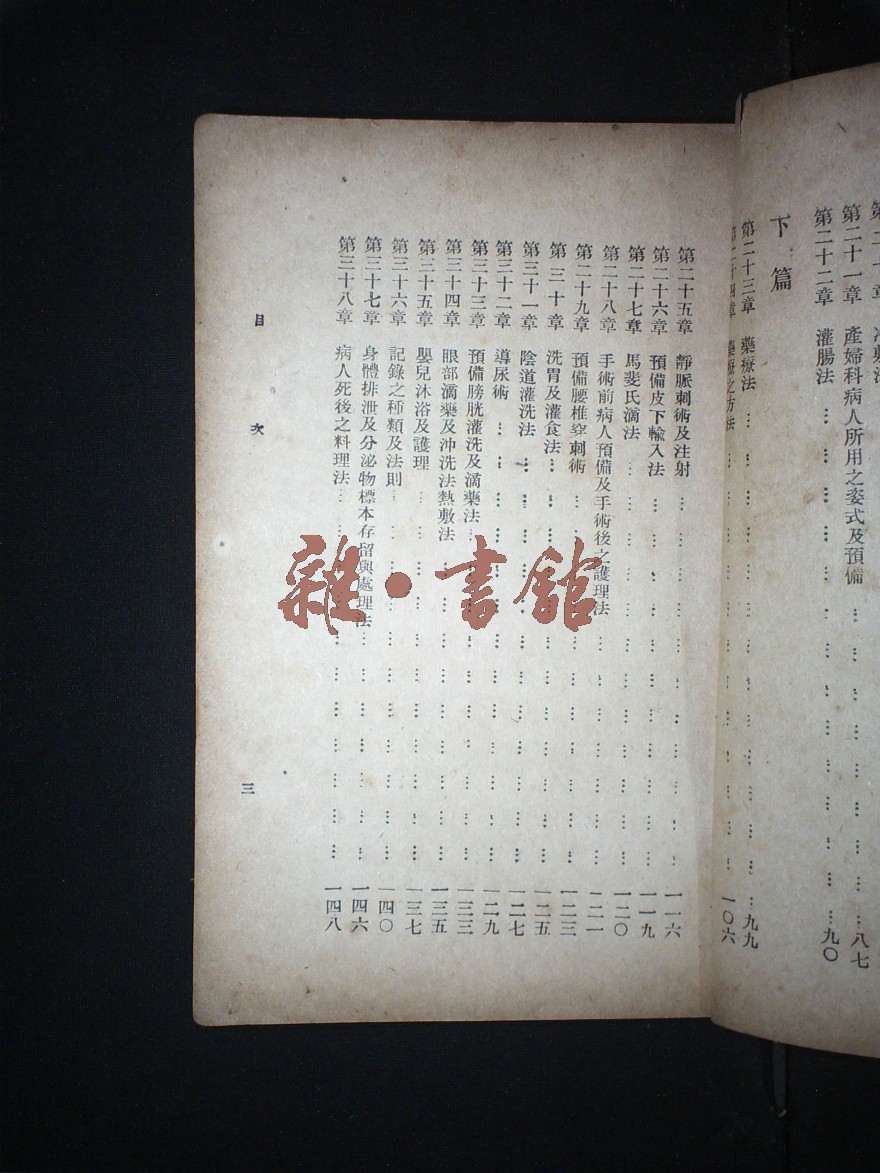 第二十一章　產婦科病人所用之姿式及預備 … 八七
第二十二章　灌腸法 … 九〇
下篇
第二十三章　藥療法 … 九九
第二十四章　藥療之方法 … 一〇六
第二十五章　靜脈刺術及注射 … 一一六
第二十六章　預備皮下輸入法 … 一一九
第二十七章　馬斐氏滴法 … 一二〇
第二十八章　手術前病人預備及手術後之護理法 … 一二一
第二十九章　預備腰椎穿刺術 … 一二三
第三十章　洗胃及灌食法 … 一二五
第三十一章　陰道灌洗法 … 一二七
第三十二章　導尿術 … 一二九
第三十三章　預備膀胱灌洗及滴藥法 … 一三三
第三十四章　眼部滴藥及沖洗法熱敷法 … 一三五
第三十五章　嬰兒沐浴及護理 … 一三七
第三十六章　記錄之種類及法則 … 一四〇
第三十七章　身體排泄及分泌物標本存留與處理法 … 一四六
第三十八章　病人死後之料理法 … 一四八
目次
三
雜·書館